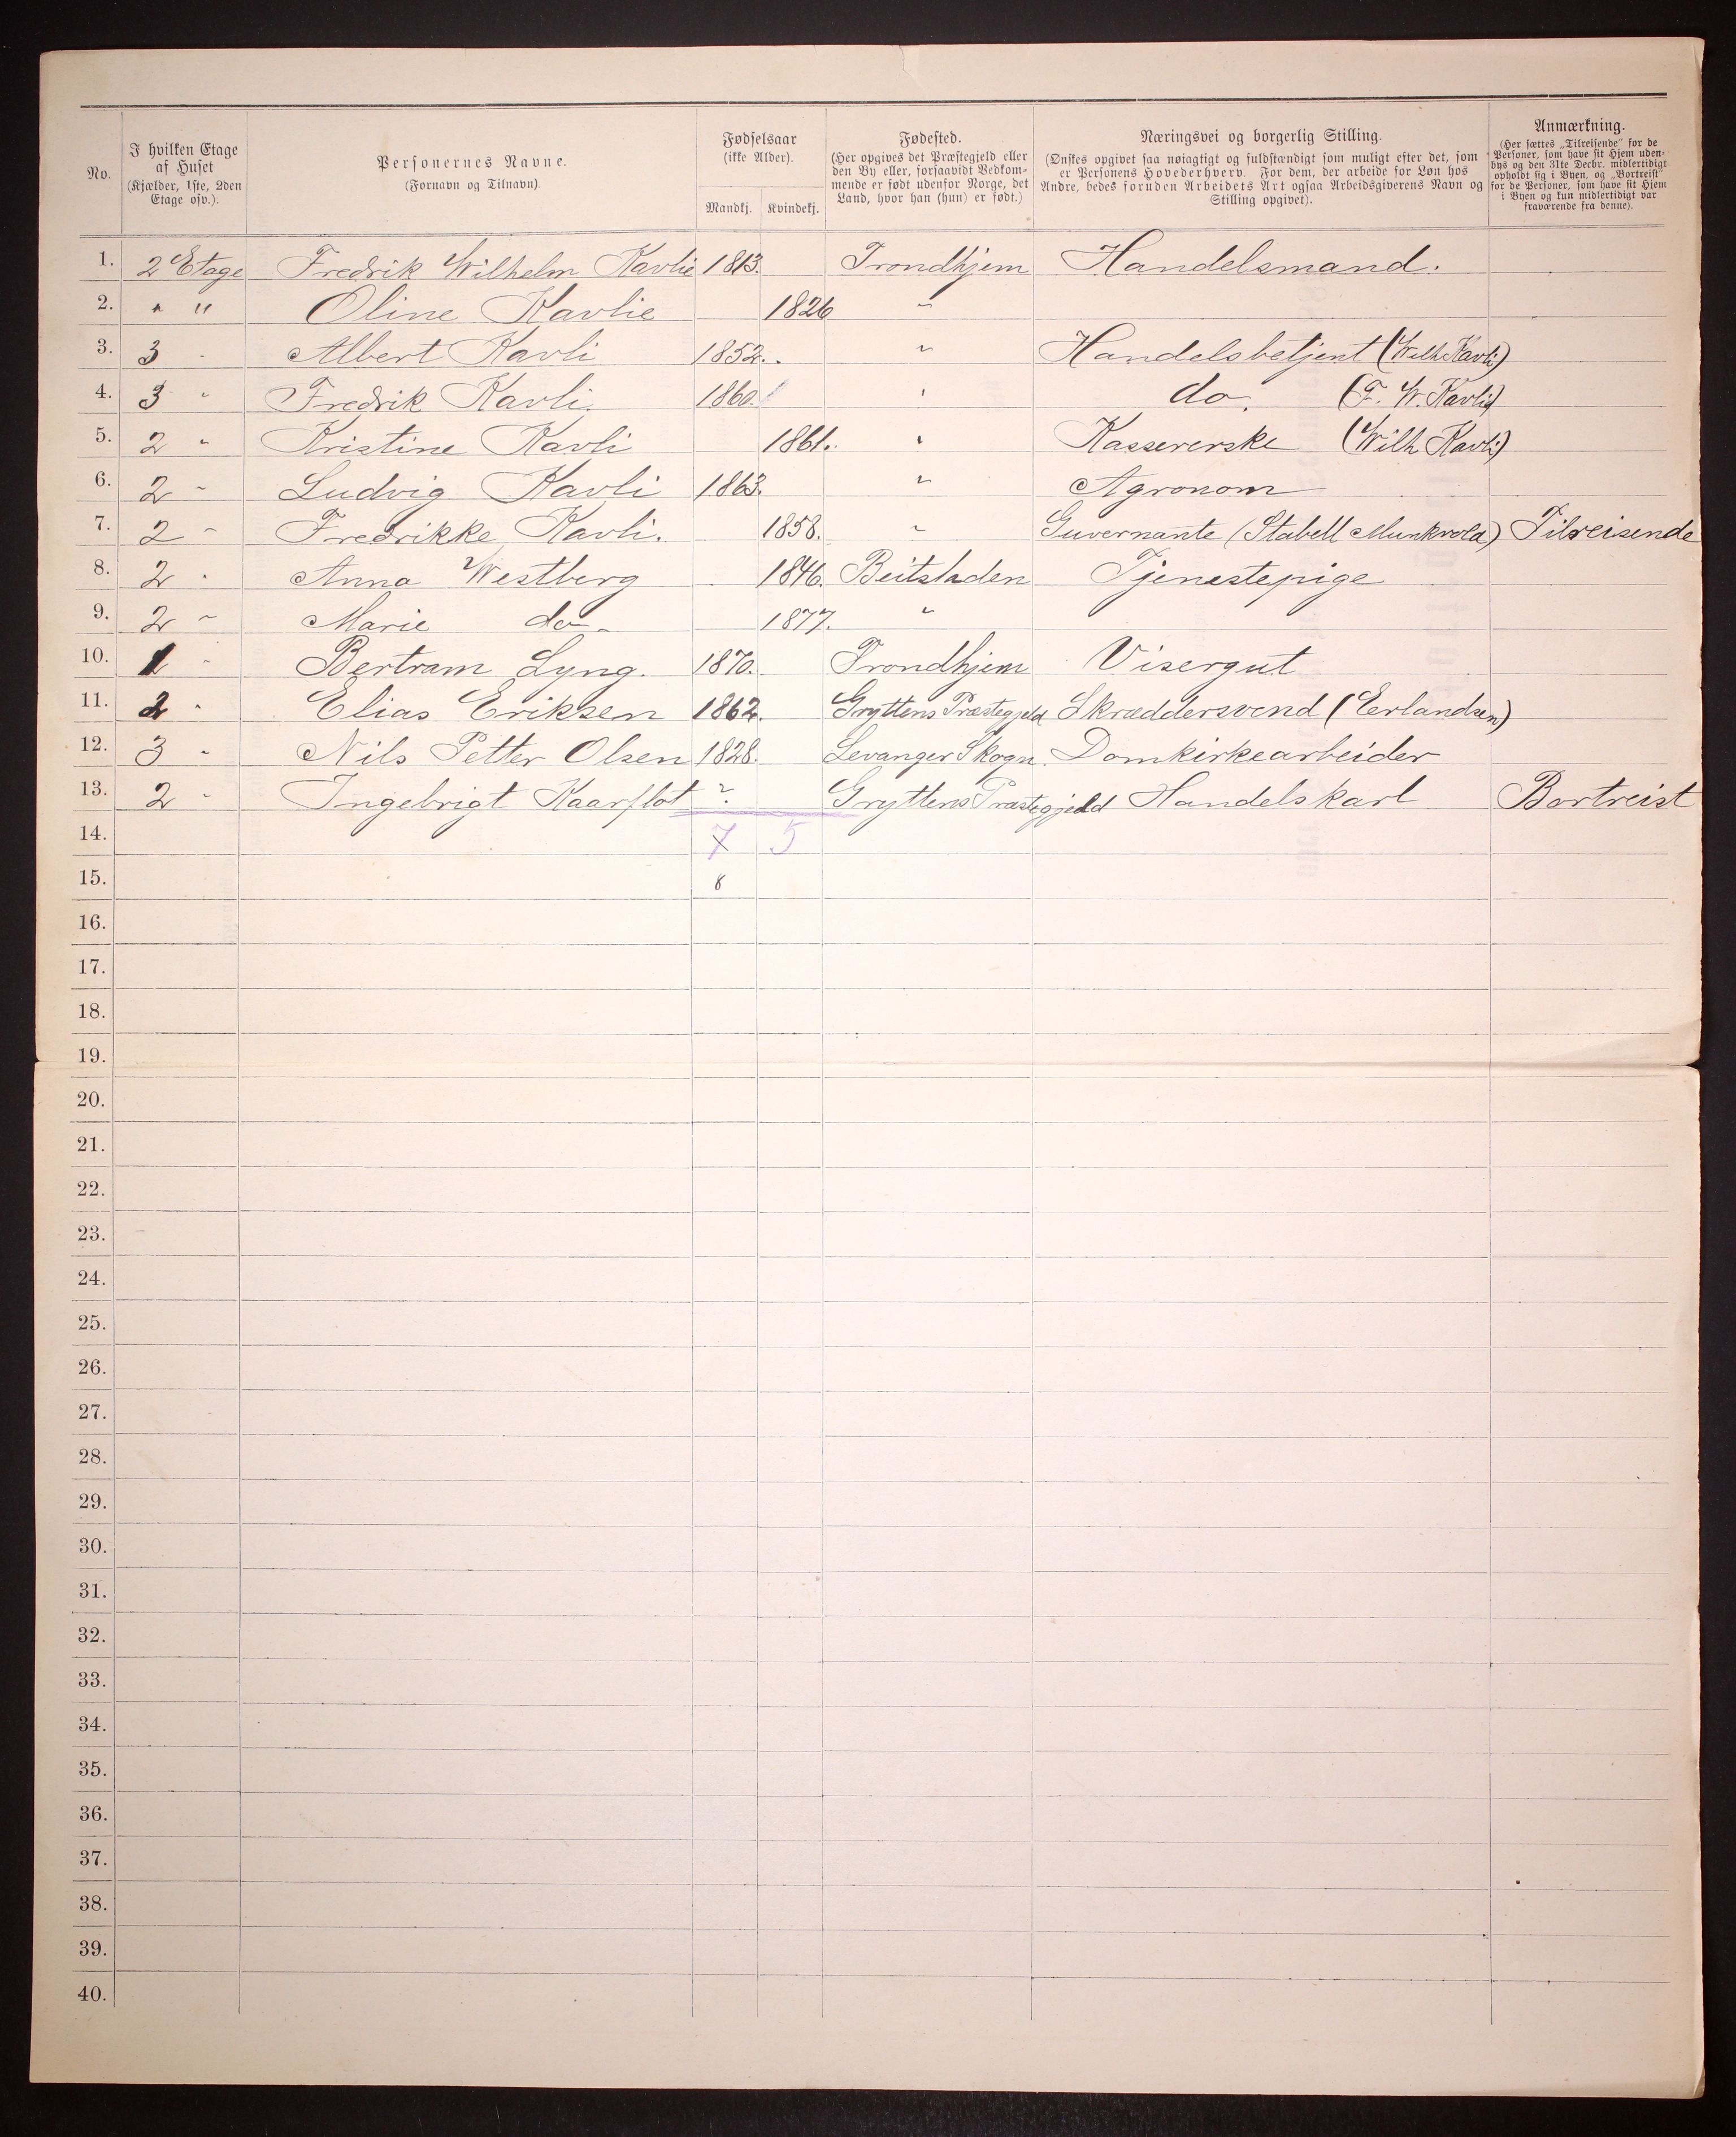 No.
I hvilken Etage
af Huset
(Kjælder, 1ste, 2den
Etage osv.).
Personernes Navne.
(Fornavn og Tilnavn).
Fødselsaar
(ikke Alder).
Mandkj. Kvindekj.
Fødested.
(Her opgives det Præstegjeld eller
den By eller, forsaavidt Vedkom-
mende er født udenfor Norge, det
Land, hvor han (hun) er født.)
Næringsvei og borgerlig Stilling.
(Ønskes opgivet saa nøiagtigt og fuldstændigt som muligt efter det, som
er Personens Hovederhverv. For dem, der arbeide for Løn hos
Andre, bedes foruden Arbeidets Art ogsaa Arbeidsgiverens Navn og
Stilling opgivet).
Anmærkning.
(Her sættes „Tilreisende" for de
Personer, som have sit Hjem uden-
bys og den 31te Decbr. midlertidigt
opholdt sig i Byen, og „Bortreist"
for de Personer, som have sit Hjem
i Byen og kun midlertidigt var
fraværende fra denne).
1. 2 Etage Fredrik Wilhelm Kavlie 1813. Trondhjem Handelsmand.
2. " " Oline Kavlie 1826 "
3. 3 " Albert Kavli 1852. " Handelsbetjent (Wilh Kavli)
4. 3 " Fredrik Kavli. 1860. " do. (F. W. Kavli)
5. 2 " Kristine Kavli 1861. " Kassererske (Wilh Kavli)
6. 2 " Ludvig Kavli 1863. " Agronom
7. 2 " Fredrikke Kavli. 1858. " Guvernante (Stabell Munkvold) Tilreisende
8. 2 " Anna Westberg 1846. Beitstaden Tjenestepige
9. 2 " Marie do 1877. "
10. 1 " Bertram Lyng. 1870. Trondhjem Visergut
11. 2 " Elias Eriksen 1862. Gryttens Præstegjeld Skræddersvend (Eerlandsen)
12. 3 " Nils Petter Olsen 1828. Levanger Skogn. Domkirkearbeider
13. 2 " Ingebrigt Kaarflot ? Gryttens Præstegjeld Handelskarl Bortreist
14. 7 5
15. 8
16.
17.
18.
19.
20.
21.
22.
23.
24.
25.
26.
27.
28.
29.
30.
31.
32.
33.
34.
35.
36.
37.
38.
39.
40.